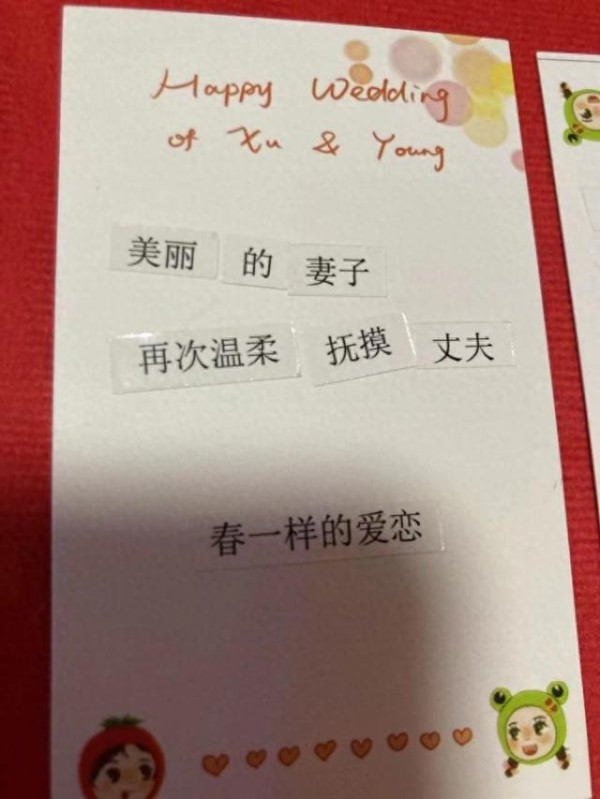 Happy Wedding
of Xu & Young
美丽 的 妻子
再次温柔 抚摸 丈夫
春一样的爱恋